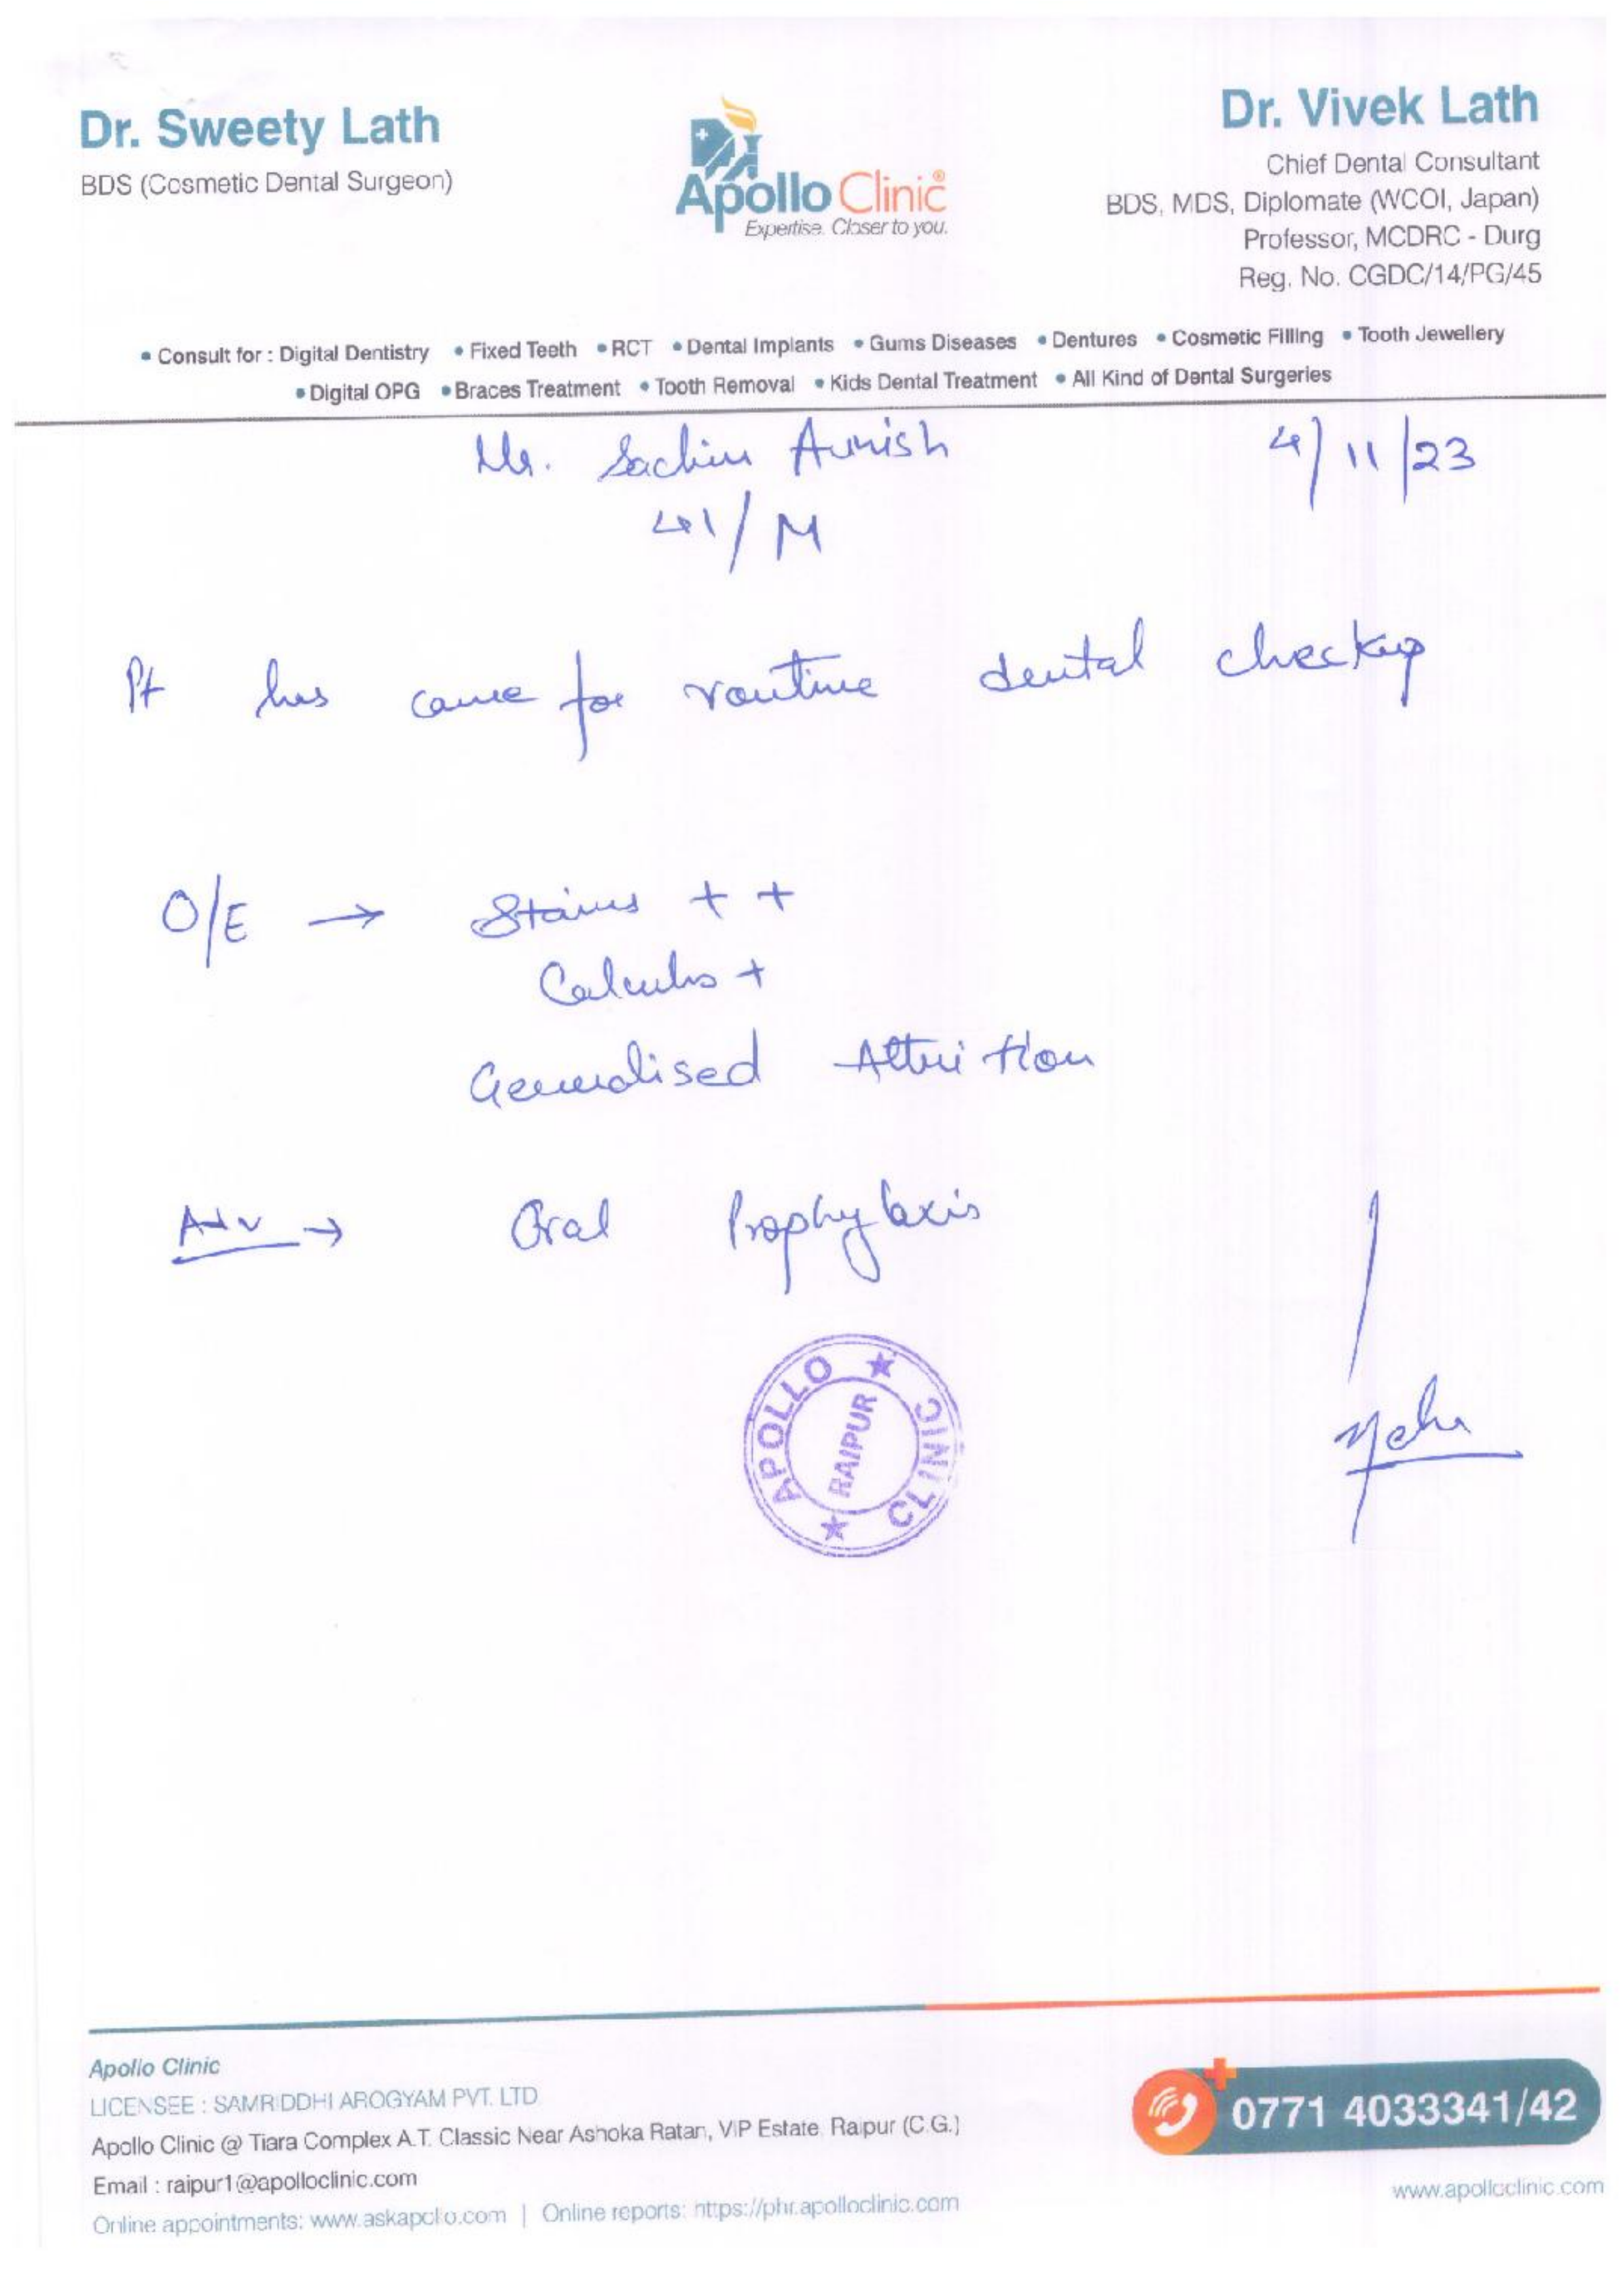 Dr. Sweety Lath
BDS (Cosmetic Dental Surgeon)
Apollo Clinic®
Expertise. Closer to you.
Dr. Vivek Lath
Chief Dental Consultant
BDS, MDS, Diplomate (WCOI, Japan)
Professor, MCDRC - Durg
Reg. No. CGDC/14/PG/45
• Consult for : Digital Dentistry • Fixed Teeth • RCT • Dental Implants • Gums Diseases • Dentures • Cosmetic Filling • Tooth Jewellery
• Digital OPG • Braces Treatment • Tooth Removal • Kids Dental Treatment • All Kind of Dental Surgeries
Mr. Sachin 4/11/23
41/M
Pt has came for routine dental checkup
O/E → Stains + +
Calculus +
Generalised Attrition
Adv → Oral Prophylaxis
APOLLO ★ CLINIC ★
RAIPUR
Apollo Clinic
LICENSEE : SAMRIDDHI AROGYAM PVT. LTD
Apollo Clinic @ Tiara Complex A.T. Classic Near Ashoka Ratan, VIP Estate, Raipur (C.G.)
Email : raipur1@apolloclinic.com
Online appointments: www.askapollo.com | Online reports: https://phr.apolloclinic.com
0771 4033341/42
www.apolloclinic.com